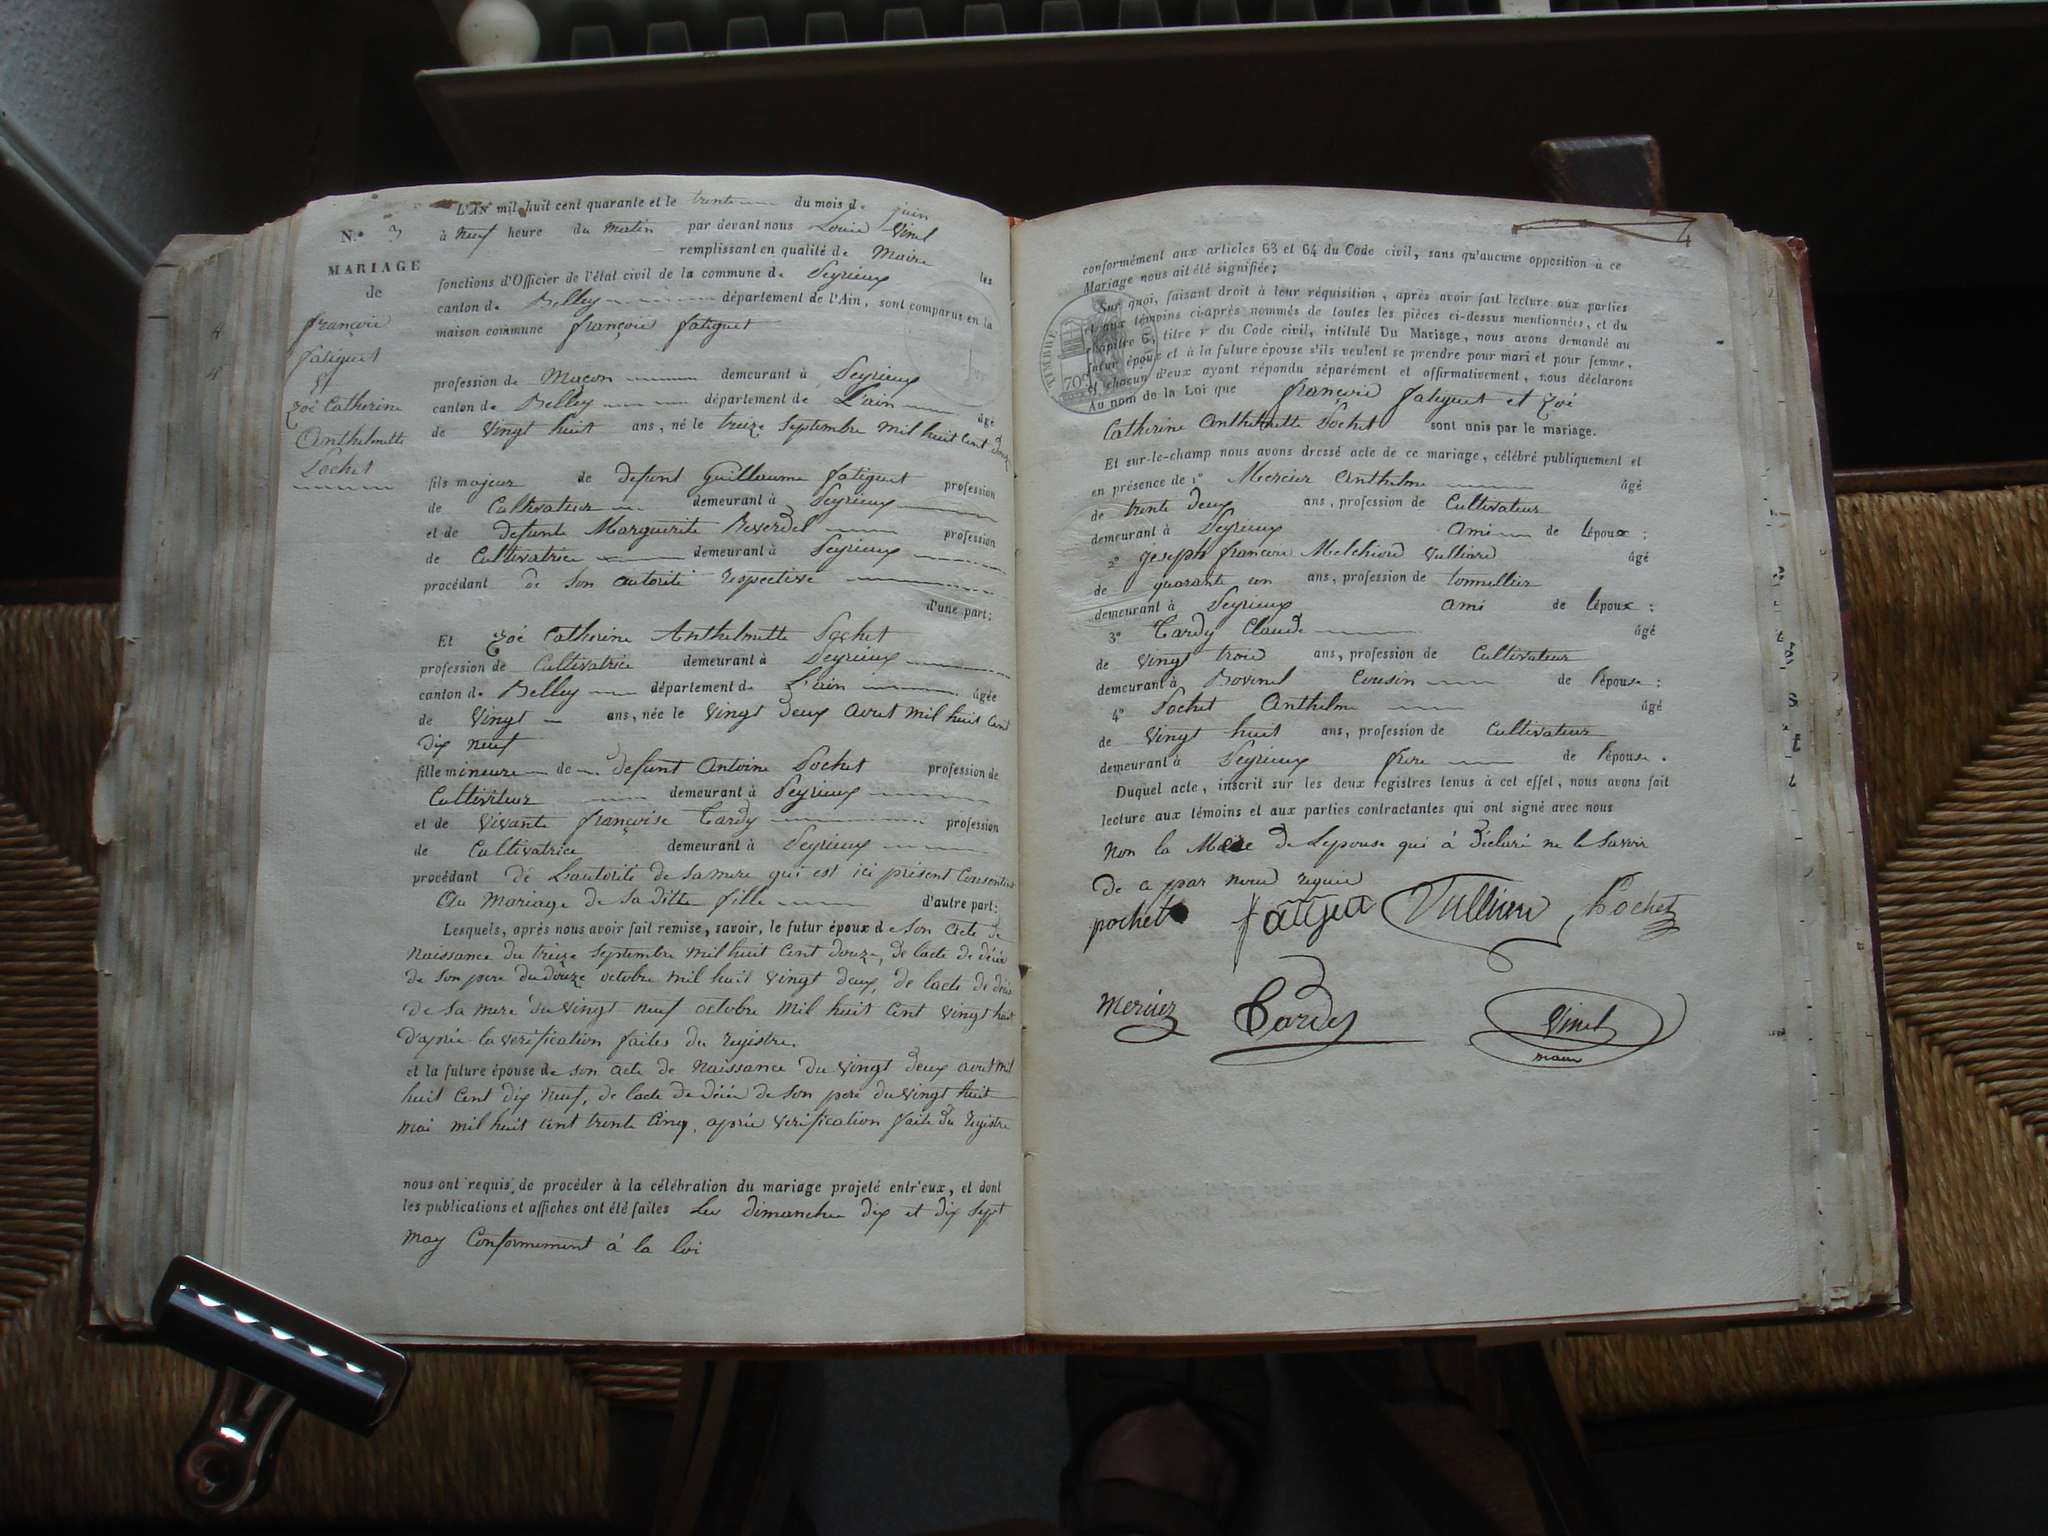 N.° 3
MARIAGE
de
françois
fatiguet
Et
Zoé Catherine
Anthelmette
Pochet
L'AN mil huit cent quarante et le trente du mois de juin
à neuf heure du matin par devant nous Louis Vinel
remplissant en qualité de Maire les
fonctions d'Officier de l'état civil de la commune de Peyrieux
canton de Belley département de l'Ain, sont comparus en la
maison commune françois fatiguet
profession de Maçon demeurant à Peyrieux
canton de Belley département de L'ain âgé
de vingt huit ans, né le treize Septembre mil huit Cent douze
fils majeur de defunt Guillaume fatiguet profession
de Cultivateur demeurant à Peyrieux
et de defunte Marguerite Reverdel profession
de Cultivatrice demeurant à Peyrieux
procédant de Son autorité respective
d'une part;
Et Zoé Catherine Anthelmette Pochet
profession de Cultivatrice demeurant à Peyrieux
canton de Belley département de L'ain âgée
de Vingt ans, née le vingt deux avril mil huit Cent
dix neuf
fille mineure de defunt Antoine Pochet profession de
Cultivateur demeurant à Peyrieux
et de vivante françoise Tardy profession
de Cultivatrice demeurant à Peyrieux
procédant de L'autorité de Sa mere qui est ici présent Consentant
Au Mariage de Sa ditte fille d'autre part;
Lesquels, après nous avoir fait remise, savoir, le futur époux de Son acte de
Naissance du treize Septembre mil huit Cent douze, de lacte de décés
de Son pere du douze octobre mil huit vingt deux, de lacte de décés
de Sa mere du vingt neuf octobre mil huit Cent vingt huit
d'après la verification faites du registre.
et la future épouse de son acte de Naissance du vingt deux avril mil
huit Cent dix neuf, de lacte de décés de Son pere du vingt huit
mai mil huit cent trente Cinq, après vérification faite du registre
nous ont requis de procéder à la célébration du mariage projeté entr'eux, et dont
les publications et affiches ont été faites Les dimanches dix et dix Sept
may Conformement à la loi
4
conformément aux articles 63 et 64 du Code civil, sans qu'aucune opposition à ce
Mariage nous ait été signifiée;
Sur quoi, faisant droit à leur réquisition, après avoir fait lecture aux parties
et aux témoins ci-après nommés de toutes les pièces ci-dessus mentionnées, et du
chapitre 6, titre v du Code civil, intitulé Du Mariage, nous avons demandé au
futur époux et à la future épouse s'ils veulent se prendre pour mari et pour femme,
et chacun d'eux ayant répondu séparément et affirmativement, nous déclarons
Au nom de la Loi que françois fatiguet et Zoé
Catherine Anthelmette Pochet sont unis par le mariage.
TIMBRE
70c
Et sur-le-champ nous avons dressé acte de ce mariage, célébré publiquement et
en présence de 1° Mercier Anthelme âgé
de trente deux ans, profession de Cultivateur
demeurant à Peyrieux Ami de lépoux;
2° joseph françois Melchiord Vulliard âgé
de quarante un ans, profession de tonnellier
demeurant à Peyrieux ami de lépoux;
3° Tardy Claude âgé
de vingt trois ans, profession de Cultivateur
demeurant à Bovinel Cousin de lépouse;
4° Pochet Anthelme âgé
de Vingt huit ans, profession de Cultivateur
demeurant à Peyrieux frere de lépouse.
Duquel acte, inscrit sur les deux registres tenus à cet effet, nous avons fait
lecture aux témoins et aux parties contractantes qui ont signé avec nous
Non la Mere de Lepouse qui à déclaré ne le Savoir
de ce par nous requis
pochet fatiguet Vulliard Pochet
mercier Tardy Vinel
maire